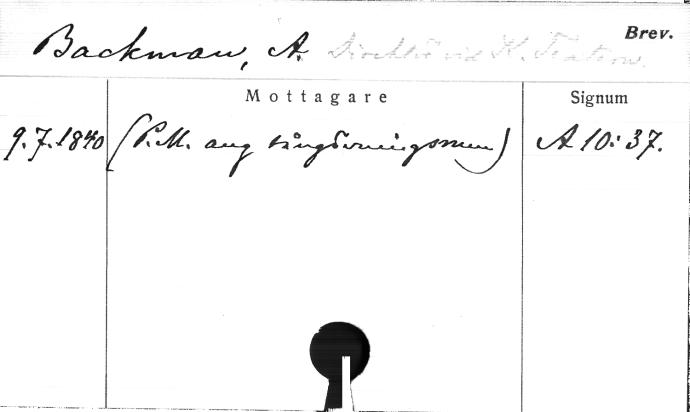 Brev.
Backman, A. Direktör vid K. Teatern.
Mottagare
Signum
9.7.1840 (P.M. ang sångövningsmen) A 10:37.